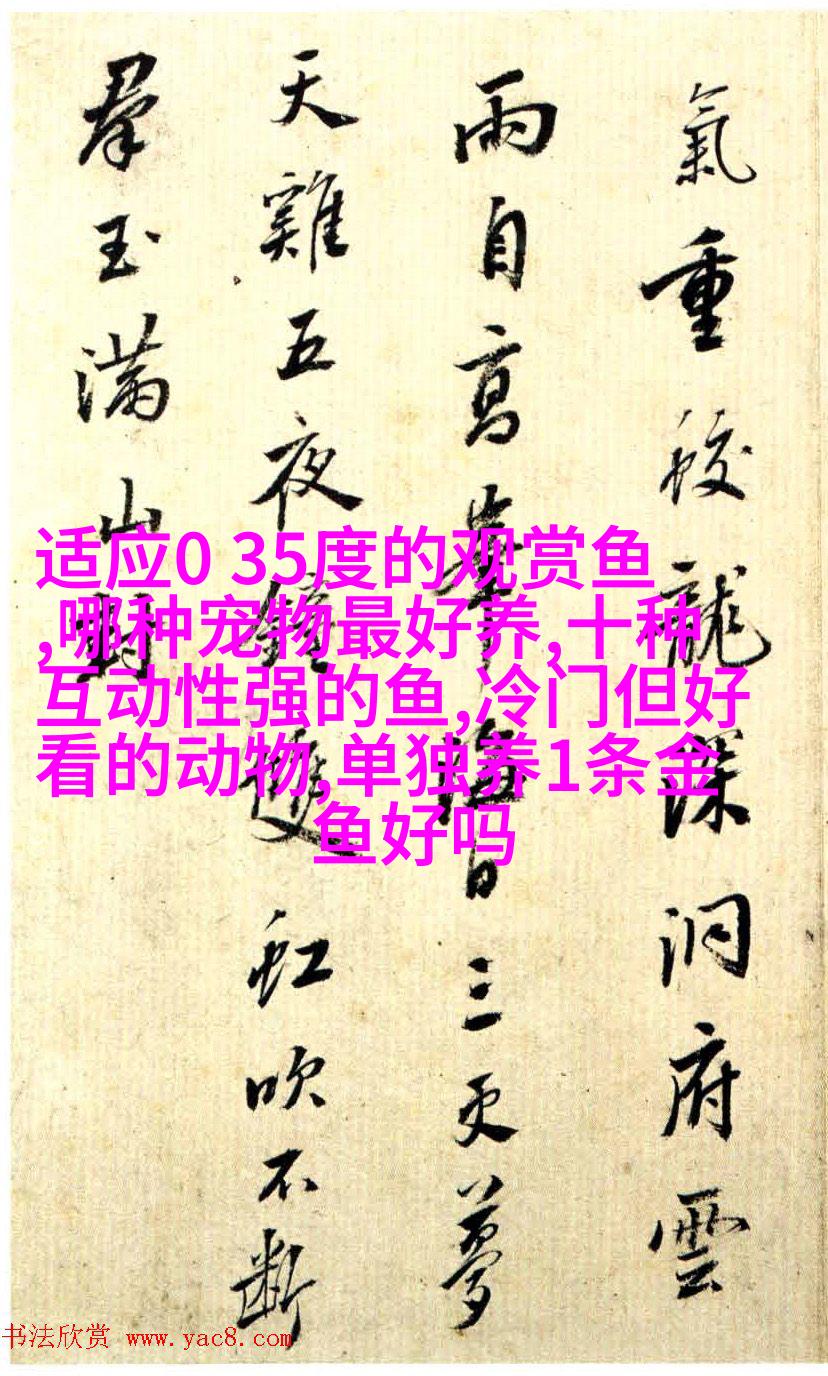 氣重蛟龍深洞府雲
雨自高峯 日三更夢
天雞五夜鐘 雙 虹吹不斷
羣玉滿山 封
适应0 35度的观赏鱼
,哪种宠物最好养,十种
互动性强的鱼,冷门但好
看的动物,单独养1条金
鱼好吗
书法欣赏 www.yac8.com